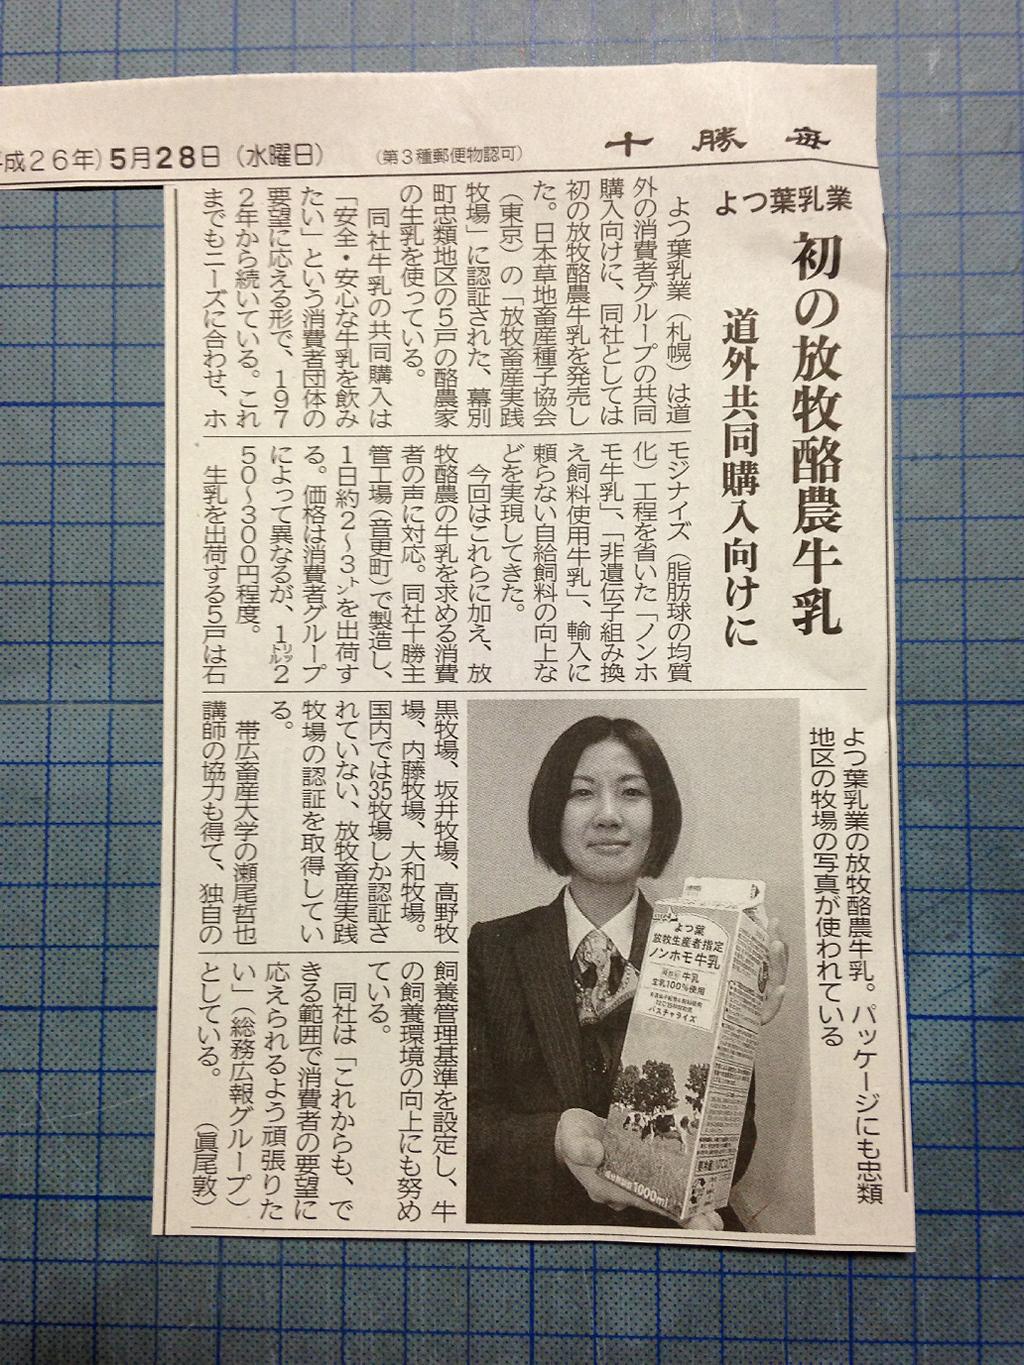 平成26年)5月28日(水曜日)
(第3種郵便物認可)
十勝毎
よつ葉乳業
初の放牧酪農牛乳
道外共同購入向けに
よつ葉乳業(札幌)は道
外の消費者グループの共同
購入向けに、同社としては
初の放牧酪農牛乳を発売し
た。日本草地畜産種子協会
(東京)の「放牧畜産実践
牧場」に認証された、幕別
町忠類地区の5戸の酪農家
の生乳を使っている。
同社牛乳の共同購入は
「安全・安心な牛乳を飲み
たい」という消費者団体の
要望に応える形で、197
2年から続いている。これ
までもニーズに合わせ、ホ
モジナイズ(脂肪球の均質
化)工程を省いた「ノンホ
モ牛乳」、「非遺伝子組み換
え飼料使用牛乳」、輸入に
頼らない自給飼料の向上な
どを実現してきた。
今回はこれらに加え、放
牧酪農の牛乳を求める消費
者の声に対応。同社十勝主
管工場(音更町)で製造し、
1日約2~3トンを出荷す
る。価格は消費者グループ
によって異なるが、1リットル2
50~300円程度。
生乳を出荷する5戸は石
黒牧場、坂井牧場、高野牧
場、内藤牧場、大和牧場。
国内では35牧場しか認証さ
れていない、放牧畜産実践
牧場の認証を取得してい
る。
帯広畜産大学の瀬尾哲也
講師の協力も得て、独自の
飼養管理基準を設定し、牛
の飼養環境の向上にも努め
ている。
同社は「これからも、で
きる範囲で消費者の要望に
応えられるよう頑張りた
い」(総務広報グループ)
としている。(眞尾敦)
よつ葉乳業の放牧酪農牛乳。パッケージにも忠類
地区の牧場の写真が使われている
よつ葉
放牧生産者指定
ノンホモ牛乳
種類別 牛乳
生乳100%使用
パスチャライズ
1000ml